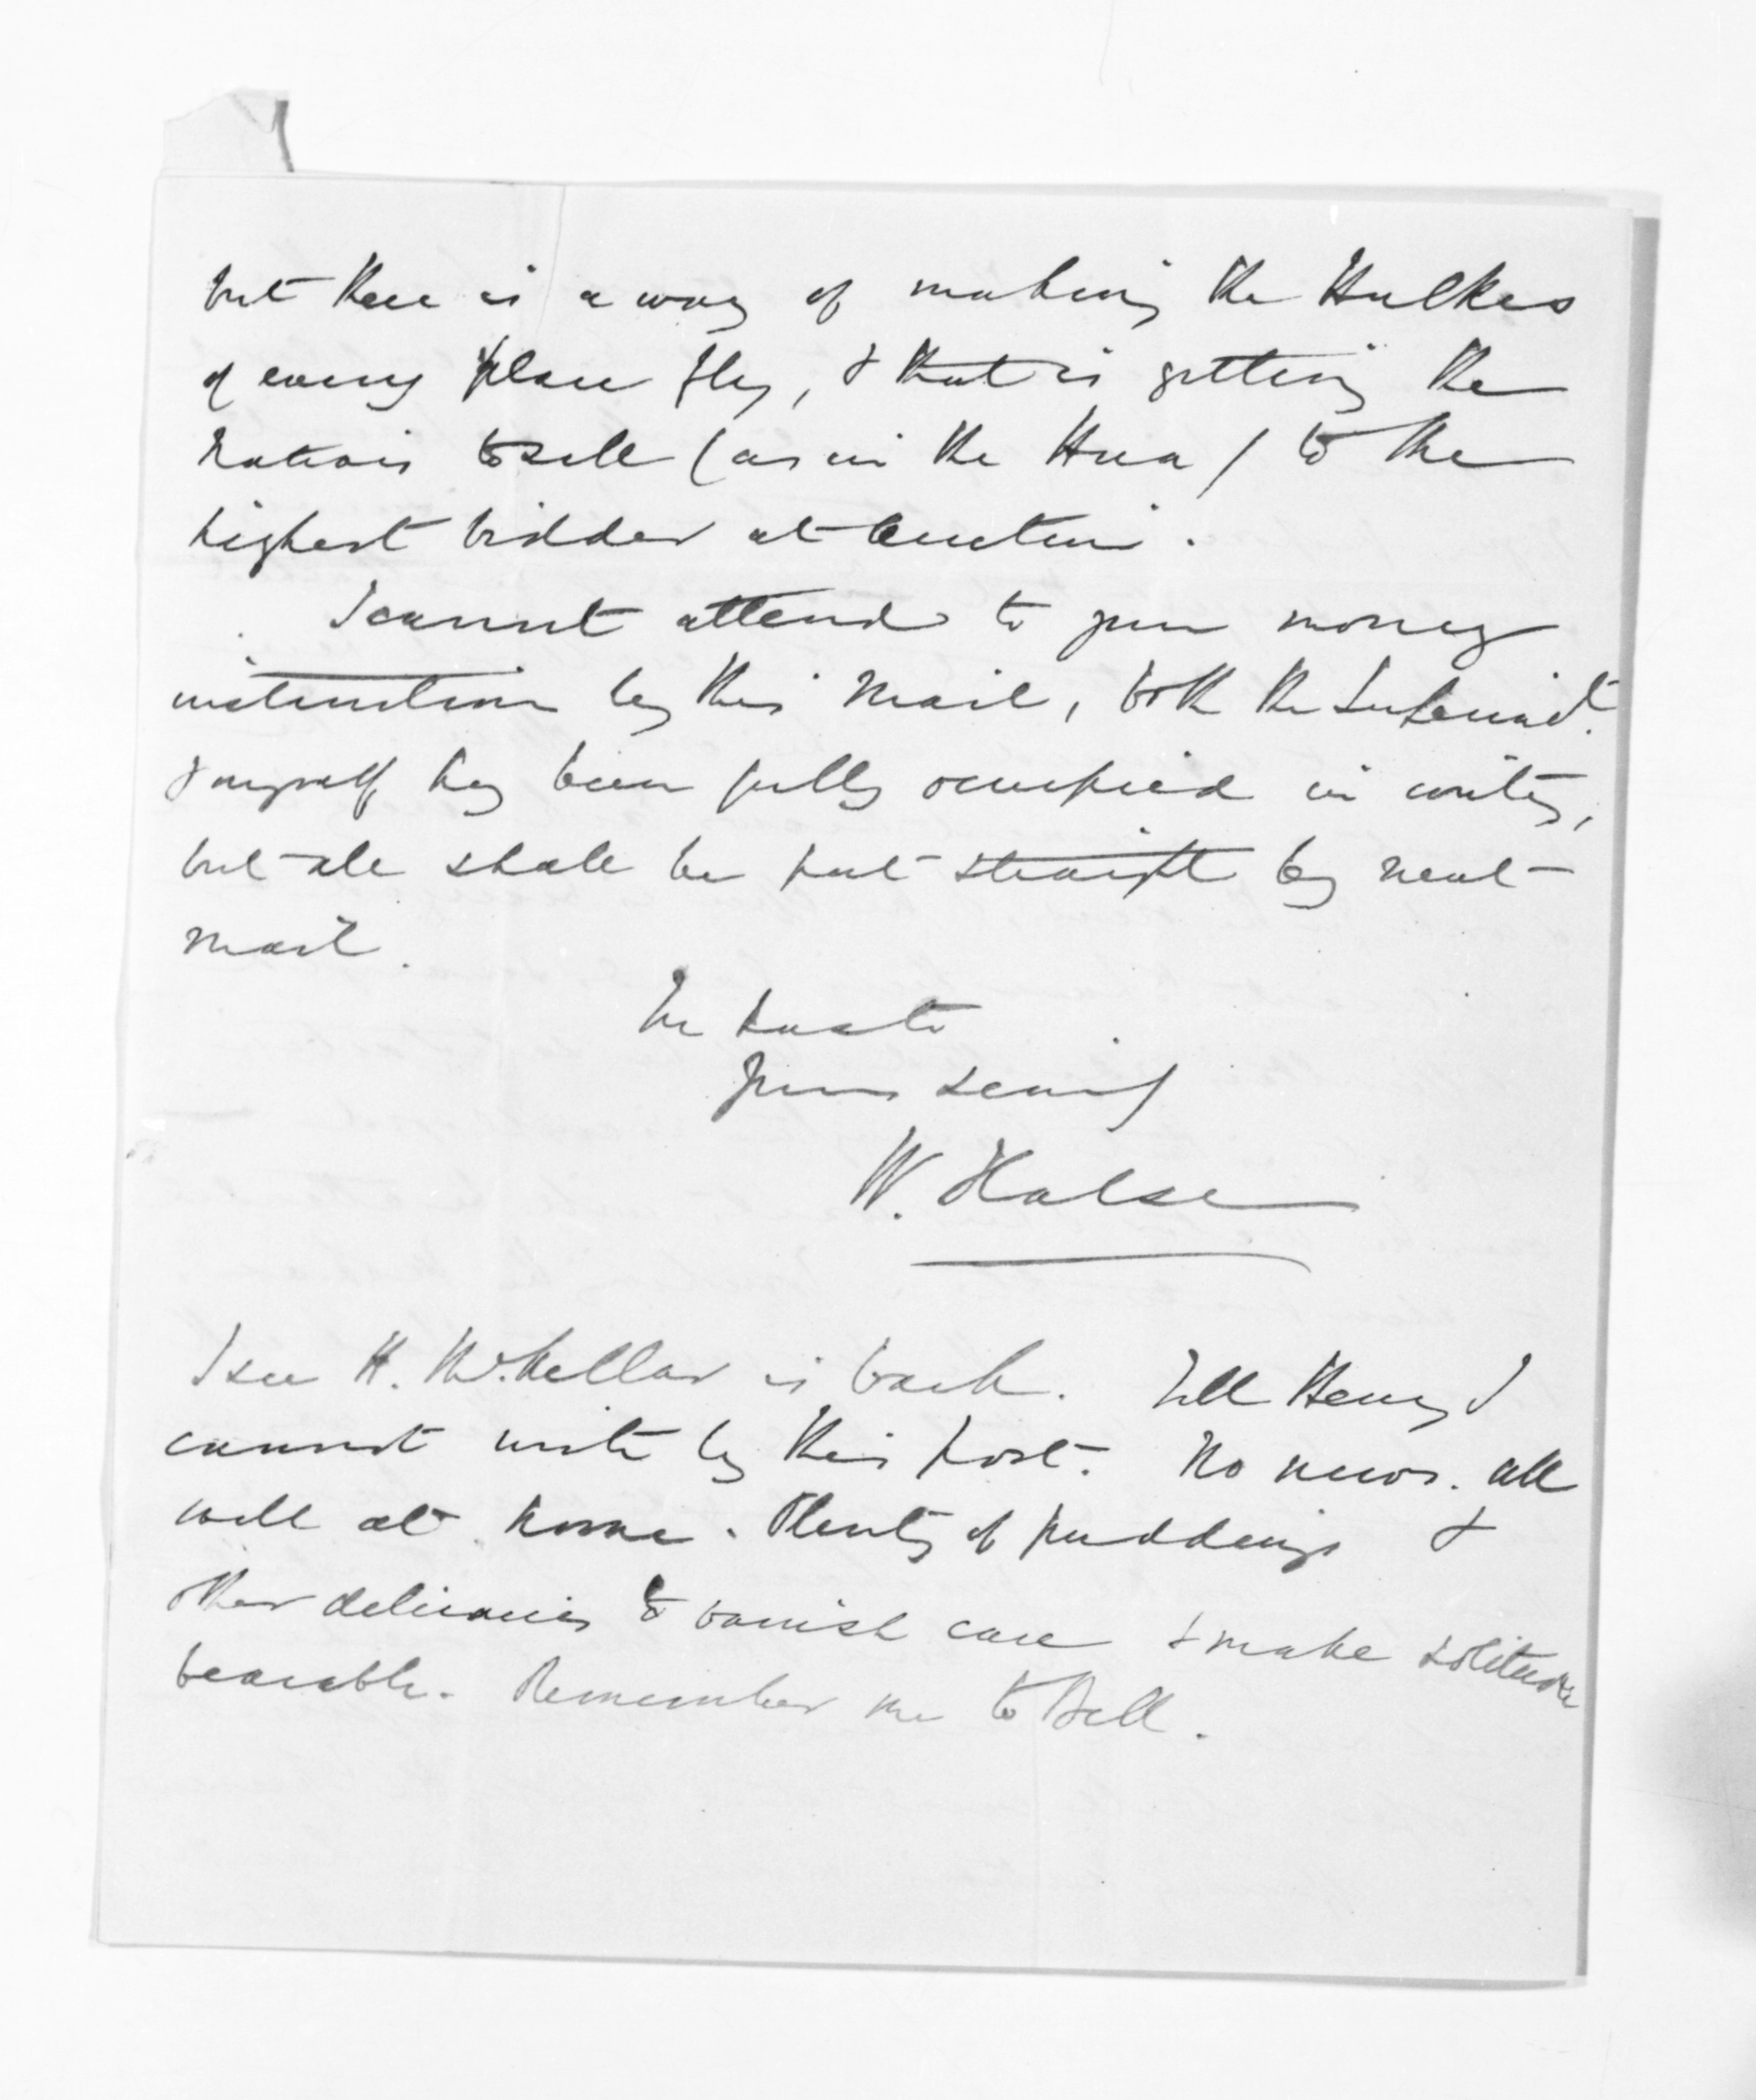 but there is a way of making the Hulkes
of every place fly, & that is getting the
natives to sell (as in the Hua) to the
highest bidder at auction.
I cannot attend to your money
instructions by this Mail, both the Superind^t.
& myself hav^g been fully occupied in writing,
but all shall be put straight by next
mail.
In haste
Yours sincy
W. Halse
I see H. McKellar is back. Tell Henry I
cannot write by this post. No news. all
well at home. Plenty of puddings &
other delicacies to banish care & make solitude
bearable. Remember me to Bell.